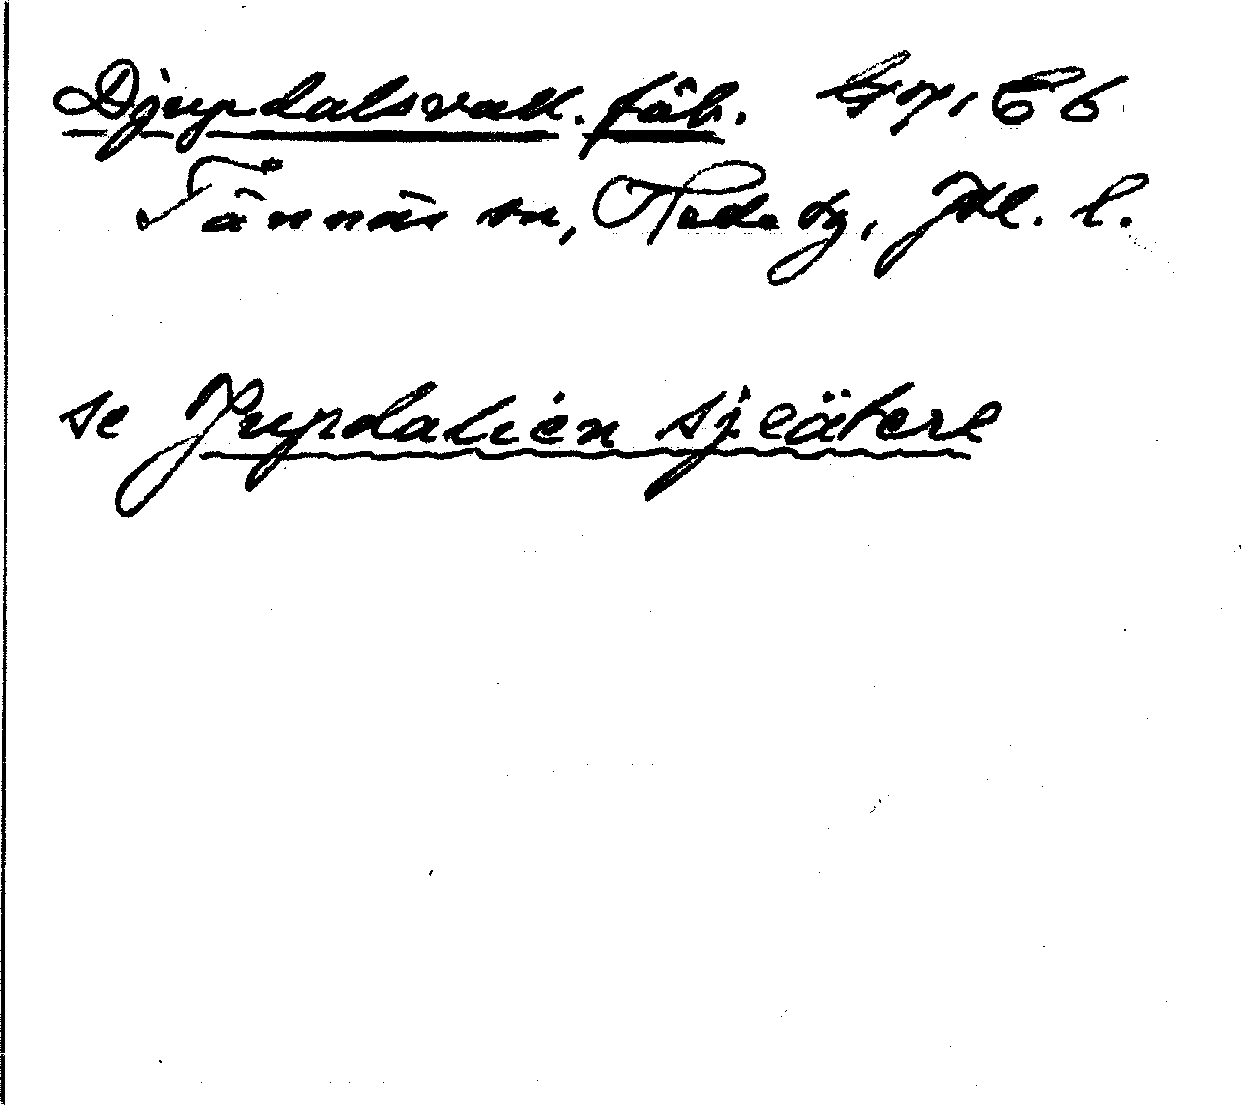 Djupdalsvall. fäb. Gz, C 6
Tännäs sn, Hede tg, Jtl. l.
se Jupdalien sjeätere